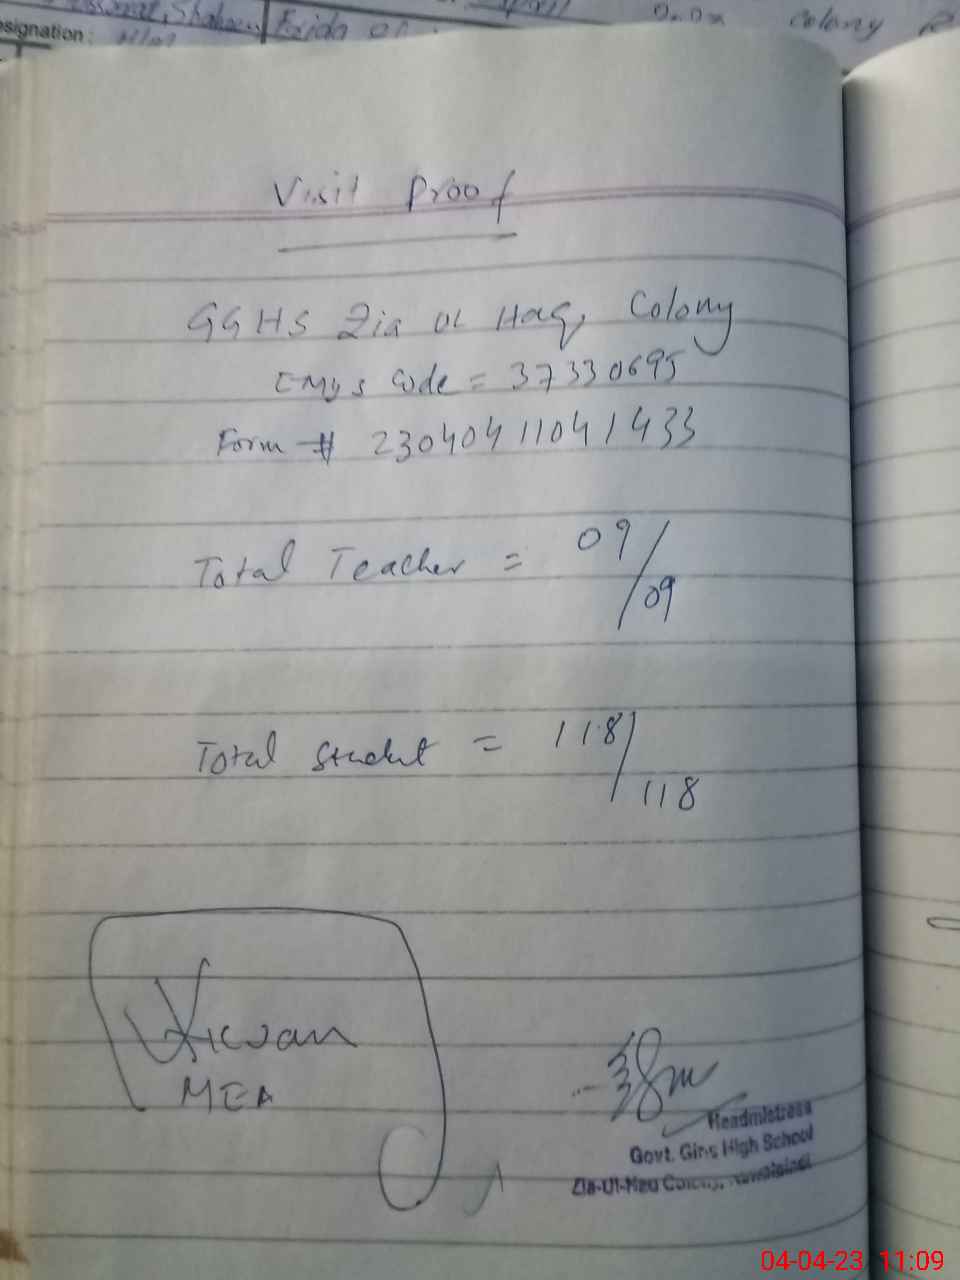 esignation:
Farida
Colony
Visit Proof
GGHS Zia ul Haq, Colony
EMys Code = 37330695
Form # 23040411041433
Total Teacher = 09/09
Total Student = 118/118
MEA
Headmistress
Govt. Girls High School
Zia-Ul-Haq Colony, Rawalpindi
04-04-23 11:09